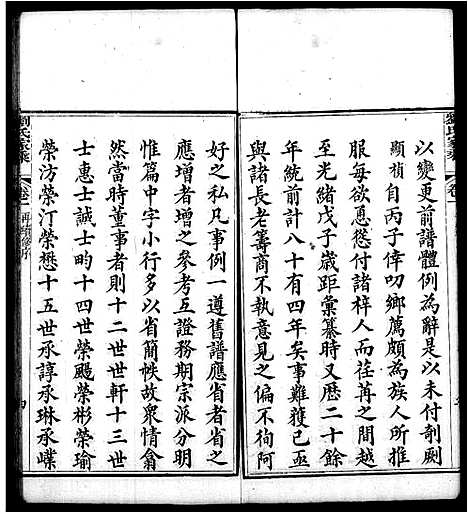 以變更前譜體例為辭是以未付剞劂
顯楨自丙子倖叨鄉薦頗為族人所推
服每欲慫慂付諸梓人而荏苒之間越
至光緒戊子歲距彙纂時又歷二十餘
年統前計八十有四年矣事難獲已亟
與諸長老籌商不執意見之偏不徇阿
好之私凡事例一遵舊譜應省者省之
應增者增之參考互證務期宗派分明
惟篇中字小行多以省簡帙故眾情翕
然當時董事者則十二世世軒十三世
士惠士誠士畇十四世榮颺榮彬榮瑜
榮汸榮汀榮懋十五世承諄承琳承㟧
劉氏家乘
卷一